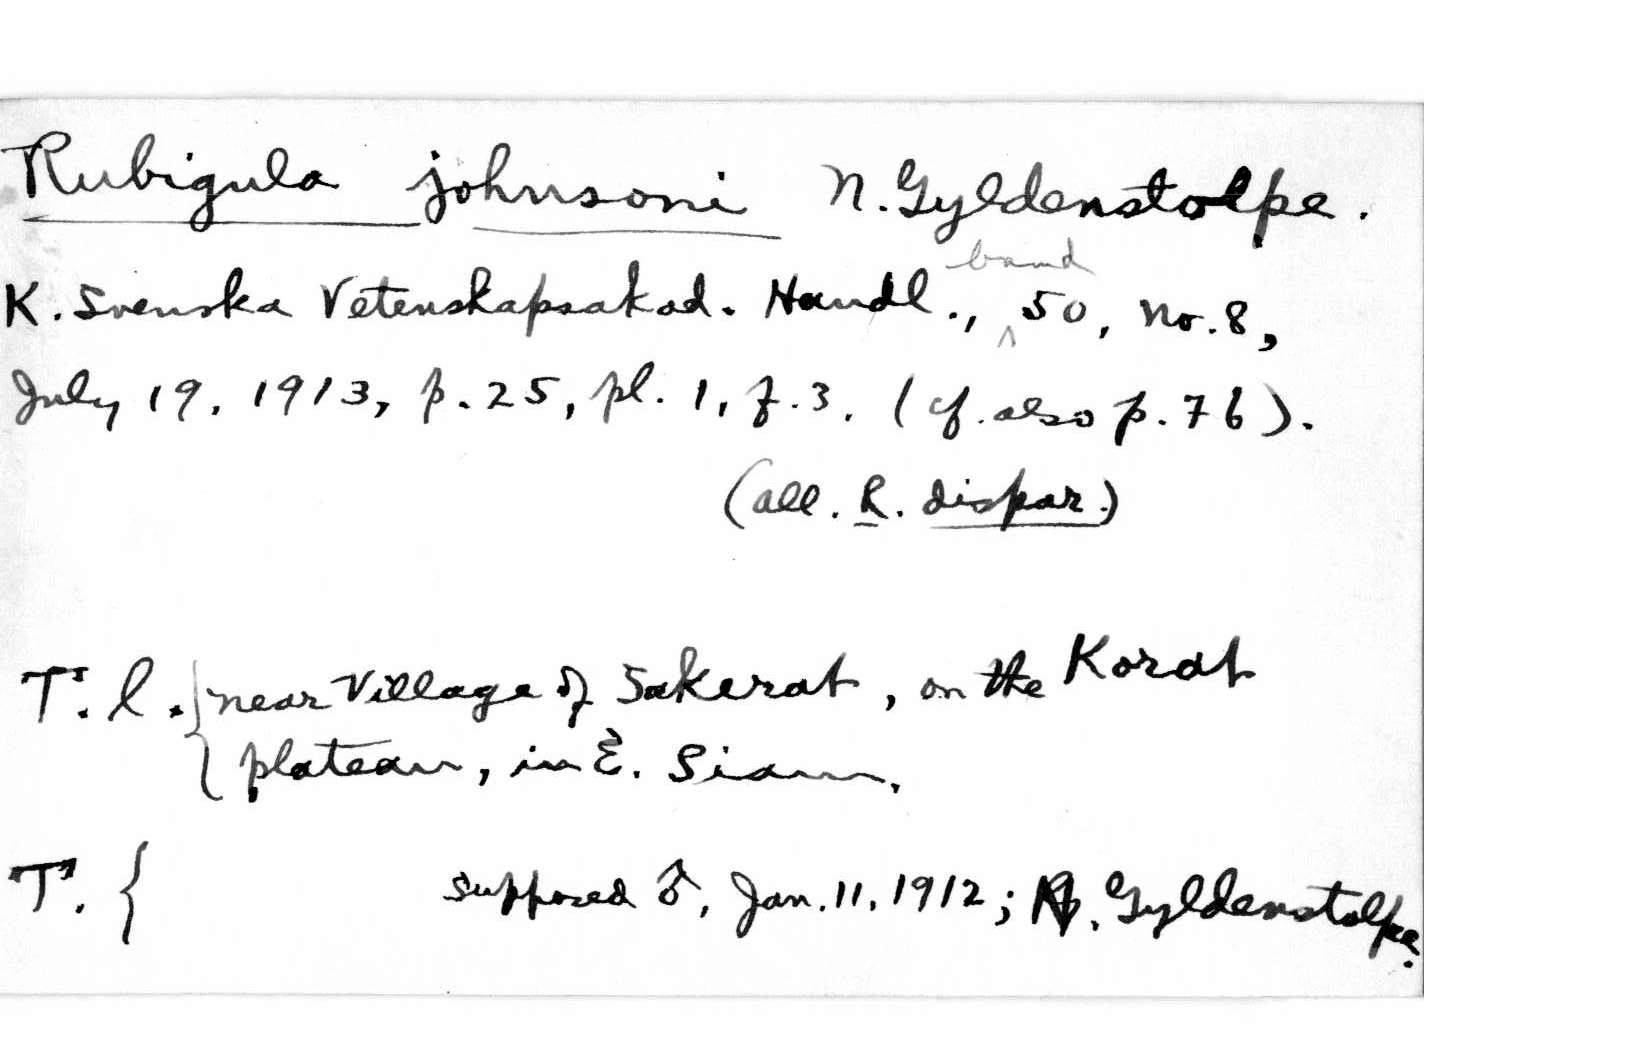 Rubigula johnsoni N. Gyldenstolpe.
K. Svenska Vetenskapsakad. Handl., band 50, no. 8,
July 19, 1913, p. 25, pl. 1, f. 3. (cf. also p. 76).
(all. R. dispar.)
T. l. { near Village of Sakerat, on the Korat
plateau, in E. Siam.
T. { supposed ♂, Jan. 11, 1912; Gyldenstolpe.